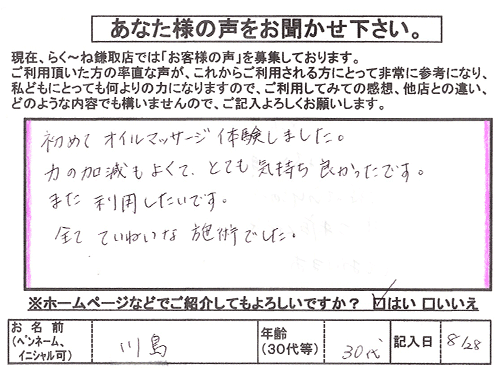 あなた様の声をお聞かせ下さい。
現在、らく～ね鎌取店では「お客様の声」を募集しております。
ご利用頂いた方の率直な声が、これからご利用される方にとって非常に参考になり、
私どもにとっても何よりの力になりますので、ご利用してみての感想、他店との違い、
どのような内容でも構いませんので、ご記入よろしくお願いします。
初めて オイルマッサージ 体験しました。
力の加減もよくて、とても 気持ち 良かったです。
また 利用したいです。
全て ていねいな 施術でした。
※ホームページなどでご紹介してもよろしいですか？ ☑はい □いいえ
お名前 (ペンネーム、イニシャル可) 川島 年齢 (30代等) 30代 記入日 8/28